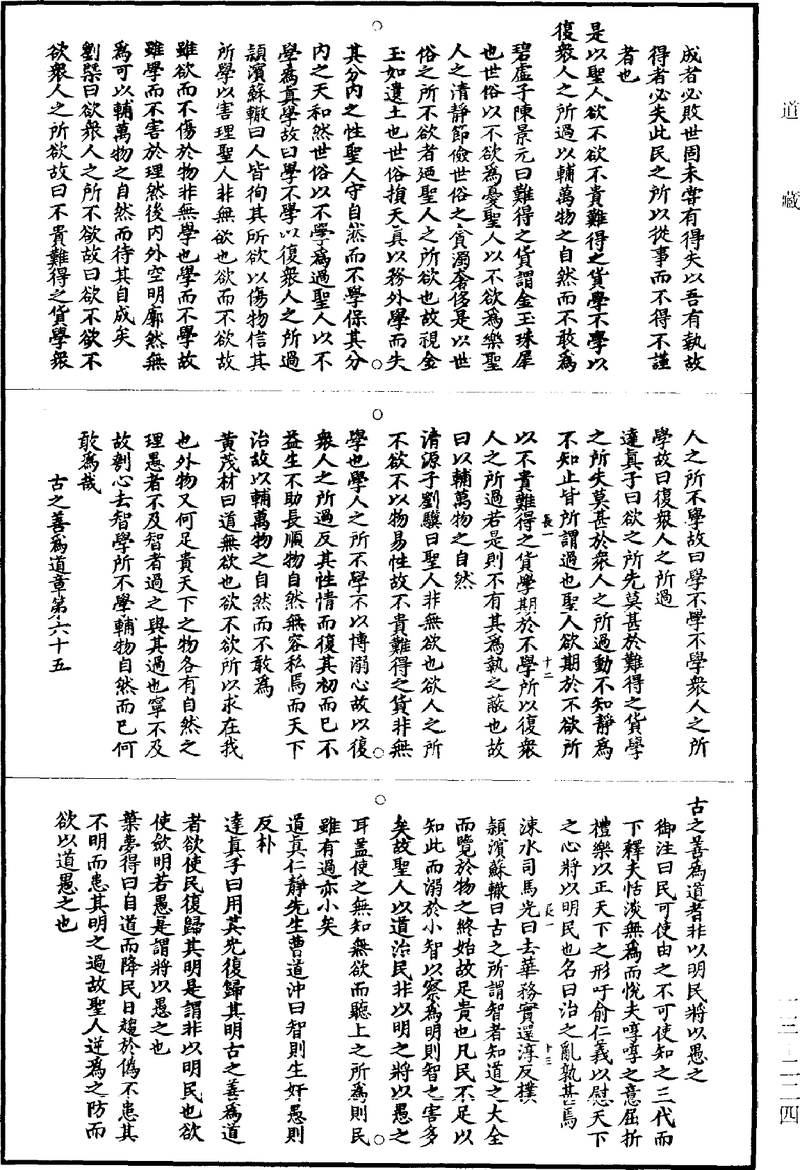 道藏
成者必敗世固未嘗有得失以吾有執故
得者必失此民之所以從事而不得不謹
者也
是以聖人欲不欲不貴難得之貨學不學以
復衆人之所過以輔萬物之自然而不敢為
碧虛子陳景元曰難得之貨謂金玉珠犀
也世俗以不欲為憂聖人以不欲為樂聖
人之清靜節儉世俗之貪濁奢侈是以世
俗之所不欲者迺聖人之所欲也故視金
玉如遺土也世俗損天真以務外學而失
其分內之性聖人守自然而不學保其分
內之天和然世俗以不學為過聖人以不
學為真學故曰學不學以復衆人之所過
頴濱蘇轍曰人皆徇其所欲以傷物信其
所學以害理聖人非無欲也欲而不欲故
雖欲而不傷於物非無學也學而不學故
雖學而不害於理然後內外空明廓然無
為可以輔萬物之自然而待其自成矣
劉槩曰欲衆人之所不欲故曰欲不欲不
欲衆人之所欲故曰不貴難得之貨學衆
人之所不學故曰學不學不學衆人之所
學故曰復衆人之所過
達真子曰欲之所先莫甚於難得之貨學
之所失莫甚於衆人之所過動不知靜為
不知止皆所謂過也聖人欲期於不欲所
長一 十二
以不貴難得之貨學期於不學所以復衆
人之所過若是則不有其為執之敵也故
曰以輔萬物之自然
清源子劉驥曰聖人非無欲也欲人之所
不欲不以物易性故不貴難得之貨非無
學也學人之所不學不以博溺心故以復
衆人之所過反其性情而復其初而已不
益生不助長順物自然無容私焉而天下
治故以輔萬物之自然而不敢為
黄茂材曰道無欲也欲不欲所以求在我
也外物又何足貴天下之物各有自然之
理愚者不及智者過之與其過也寧不及
故剖心去智學所不學輔物自然而已何
敢為哉
古之善為道章第六十五
古之善為道者非以明民將以愚之
御注曰民可使由之不可使知之三代而
下釋夫恬淡無為而悅夫啍啍之意屈折
禮樂以正天下之形吁俞仁義以慰天下
之心將以明民也名曰治之亂孰甚焉
長一 十三
涑水司馬光曰去華務實還淳反樸
頴濱蘇轍曰古之所謂智者知道之大全
而覽於物之終始故足貴也凡民不足以
知此而溺於小智以察為明則智之害多
矣故聖人以道治民非以明之將以愚之
耳蓋使之無知無欲而聽上之所為則民
雖有過亦小矣
道真仁靜先生曹道沖曰智則生奸愚則
反朴
達真子曰用其光復歸其明古之善為道
者欲使民復歸其明是謂非以明民也欲
使歛明若愚是謂將以愚之也
葉夢得曰自道而降民日趨於僞不患其
不明而患其明之過故聖人逆為之防而
欲以道愚之也
一三—二二四